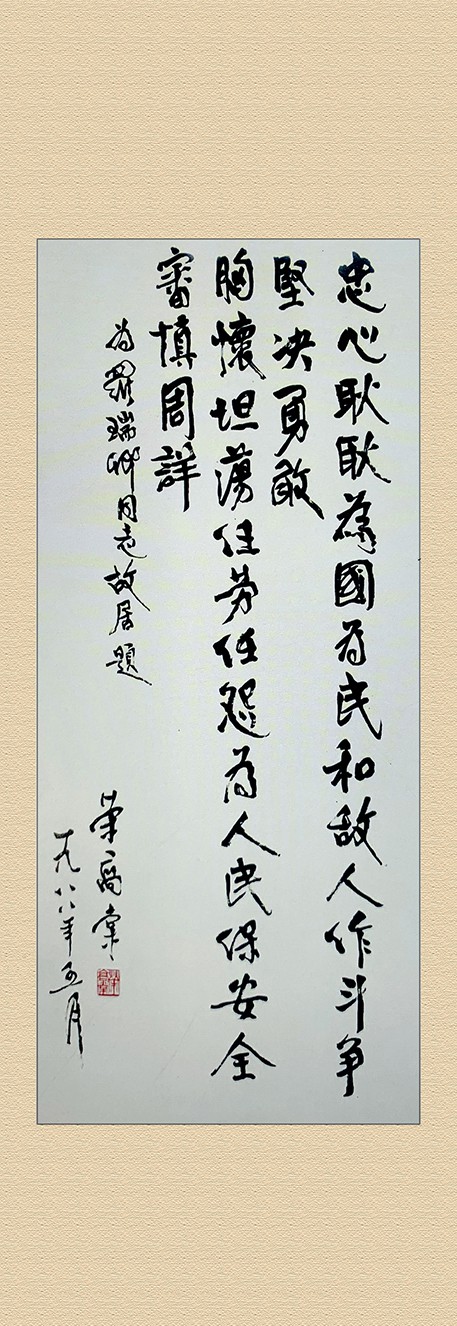 忠心耿耿為國为民和敌人作斗争
堅决勇敢
胸懷坦蕩任劳任怨為人民保安全
審慎周詳
为罗瑞卿同志故居題
荣高棠
一九八八年五月